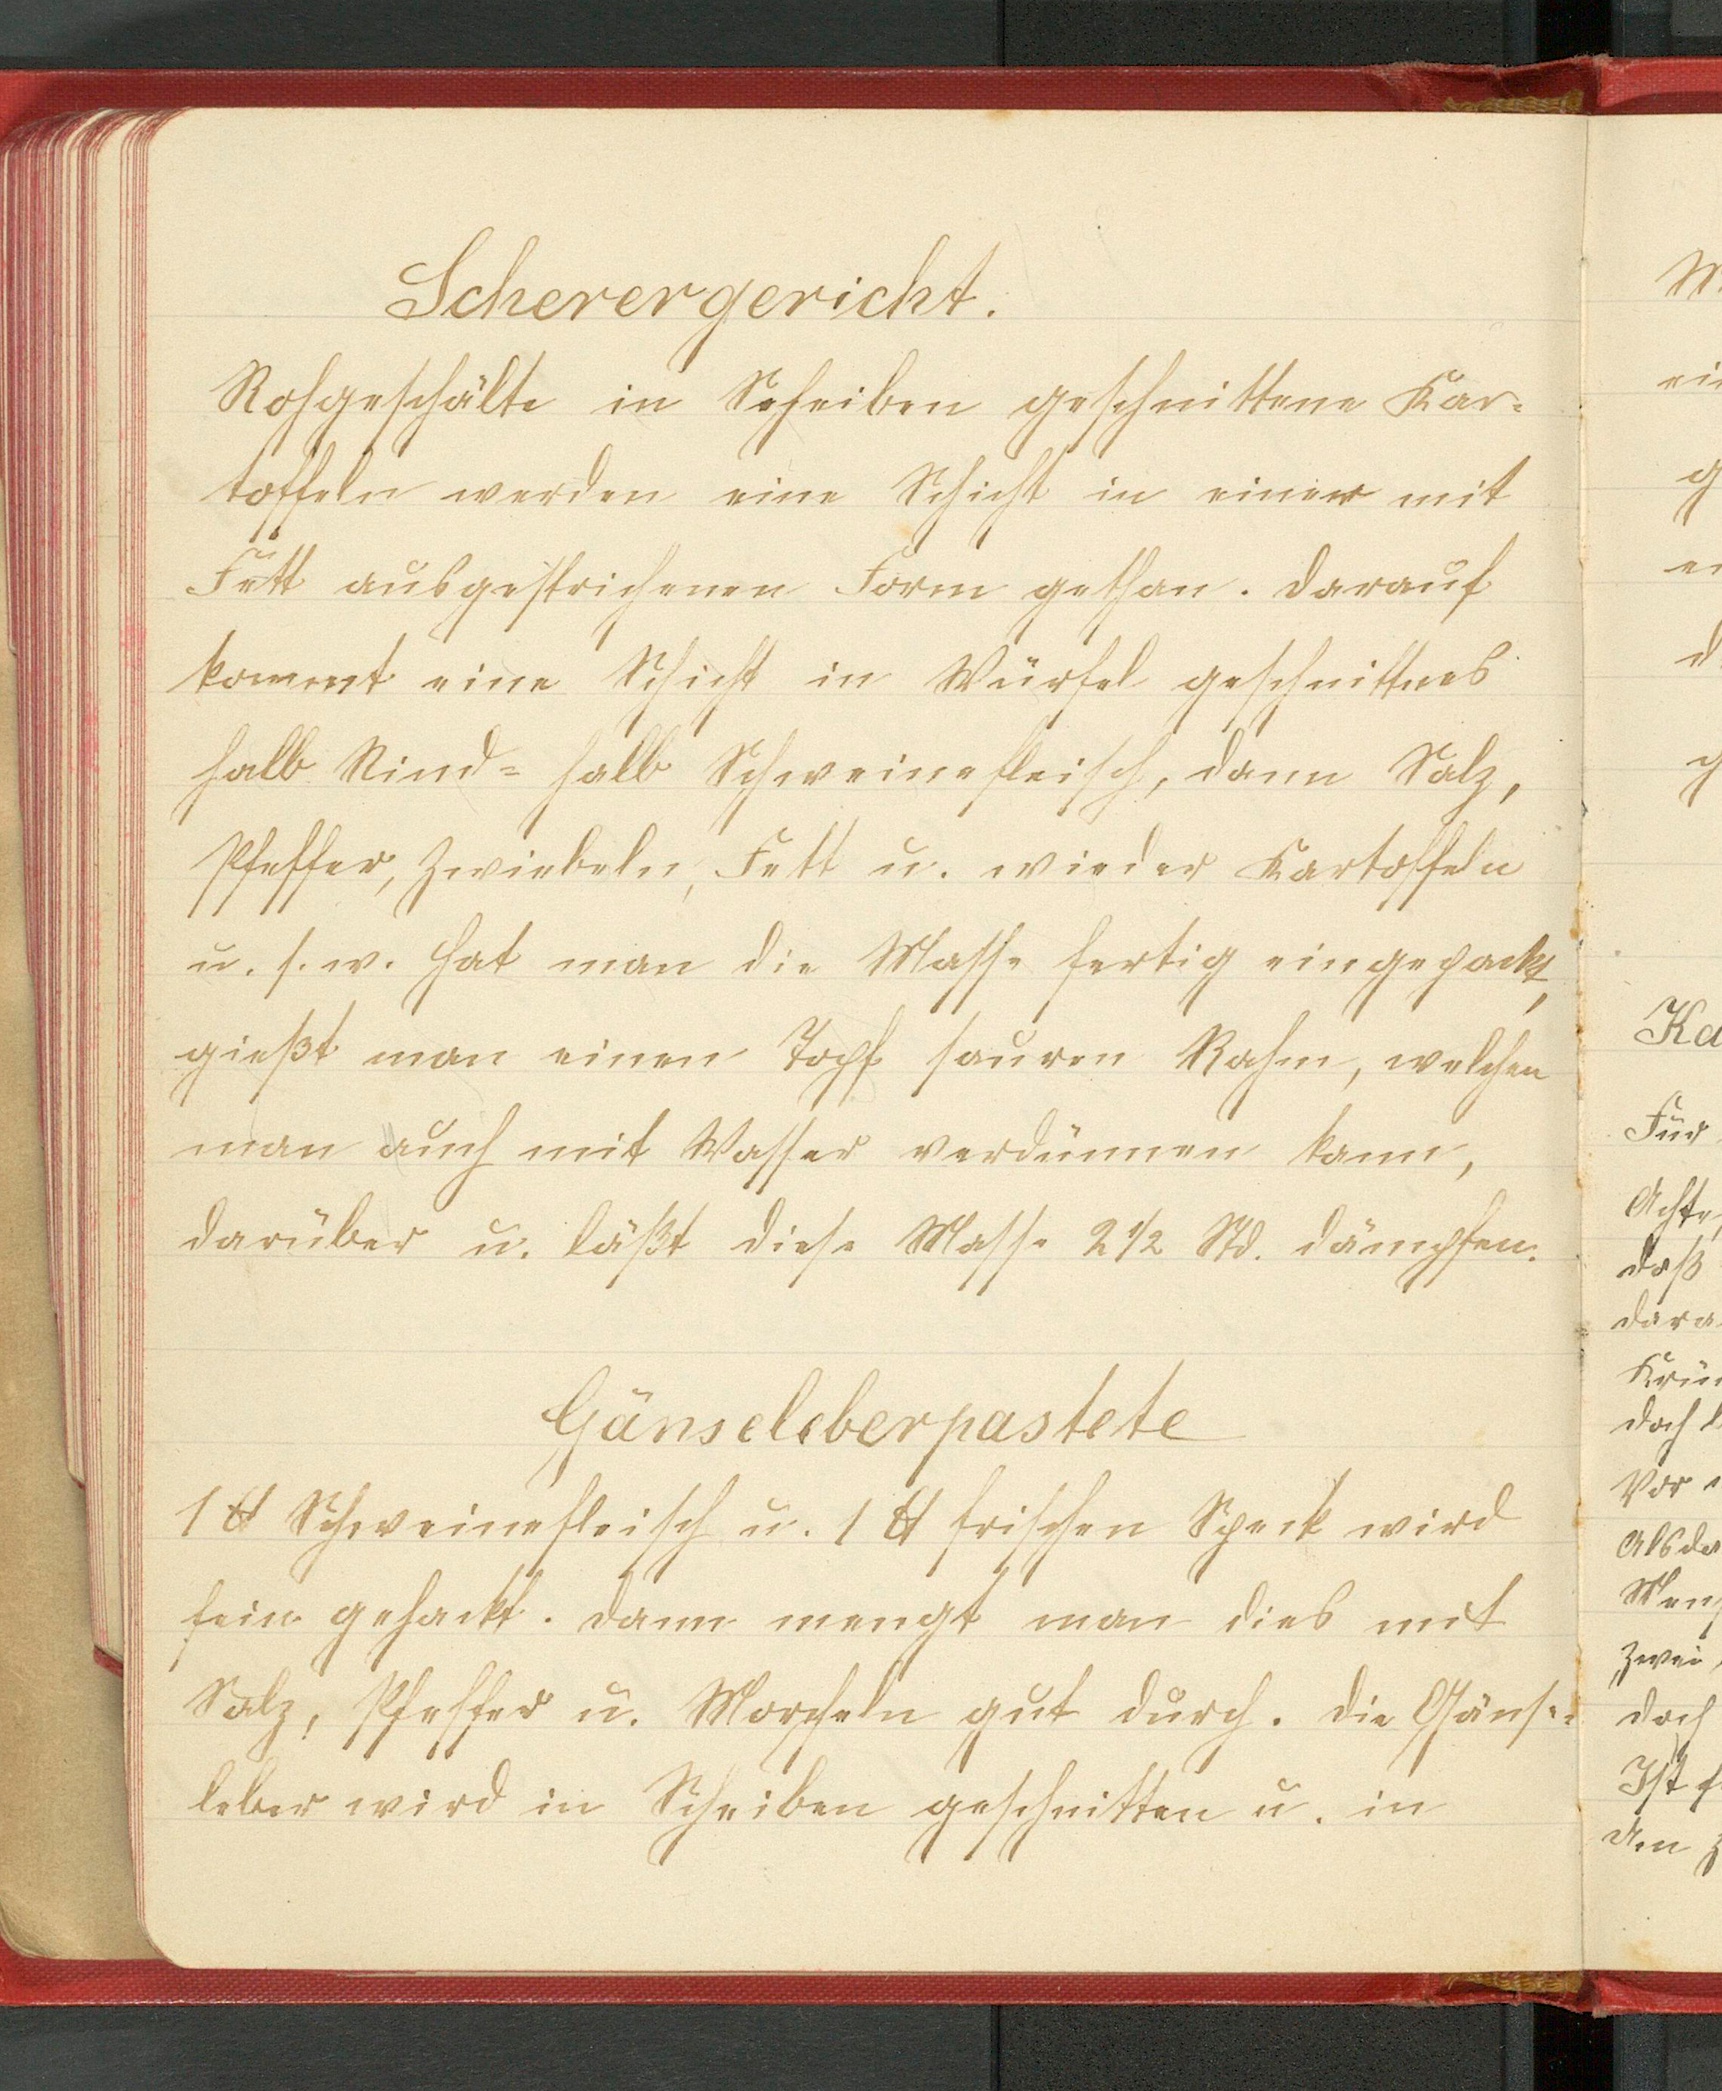 Scherergericht.
Rohgeschälte in Scheiben geschnittene Kar-
toffeln werden eine Schicht in einer mit
Fett ausgestrichenen Form gethan. Darauf
kommt eine Schicht in Würfel geschnittnes
halb Rind- halb Schweinefleisch, dann Salz,
Pfeffer, Zwiebeln, Fett u. wieder Kartoffeln
u. s. w. Hat man die Masse fertig eingepackt,
gießt man einen Topf sauren Rahm, welchen
man auch mit Wasser verdünnen kann,
darüber u. läßt diese Masse 2 1/2 Std. dämpfen.
Gänseleberpastete
1 ℔ Schweinefleisch u. 1 ℔ frischen Speck wird
fein gehackt. Dann mengt man dies mit
Salz, Pfeffer u. Morcheln gut durch. Die Gänse-
leber wird in Scheiben geschnitten u. in
Ka
Für
Achte
daß
dara
doch
Vor
Alsda
zwei
doch
Ist
den